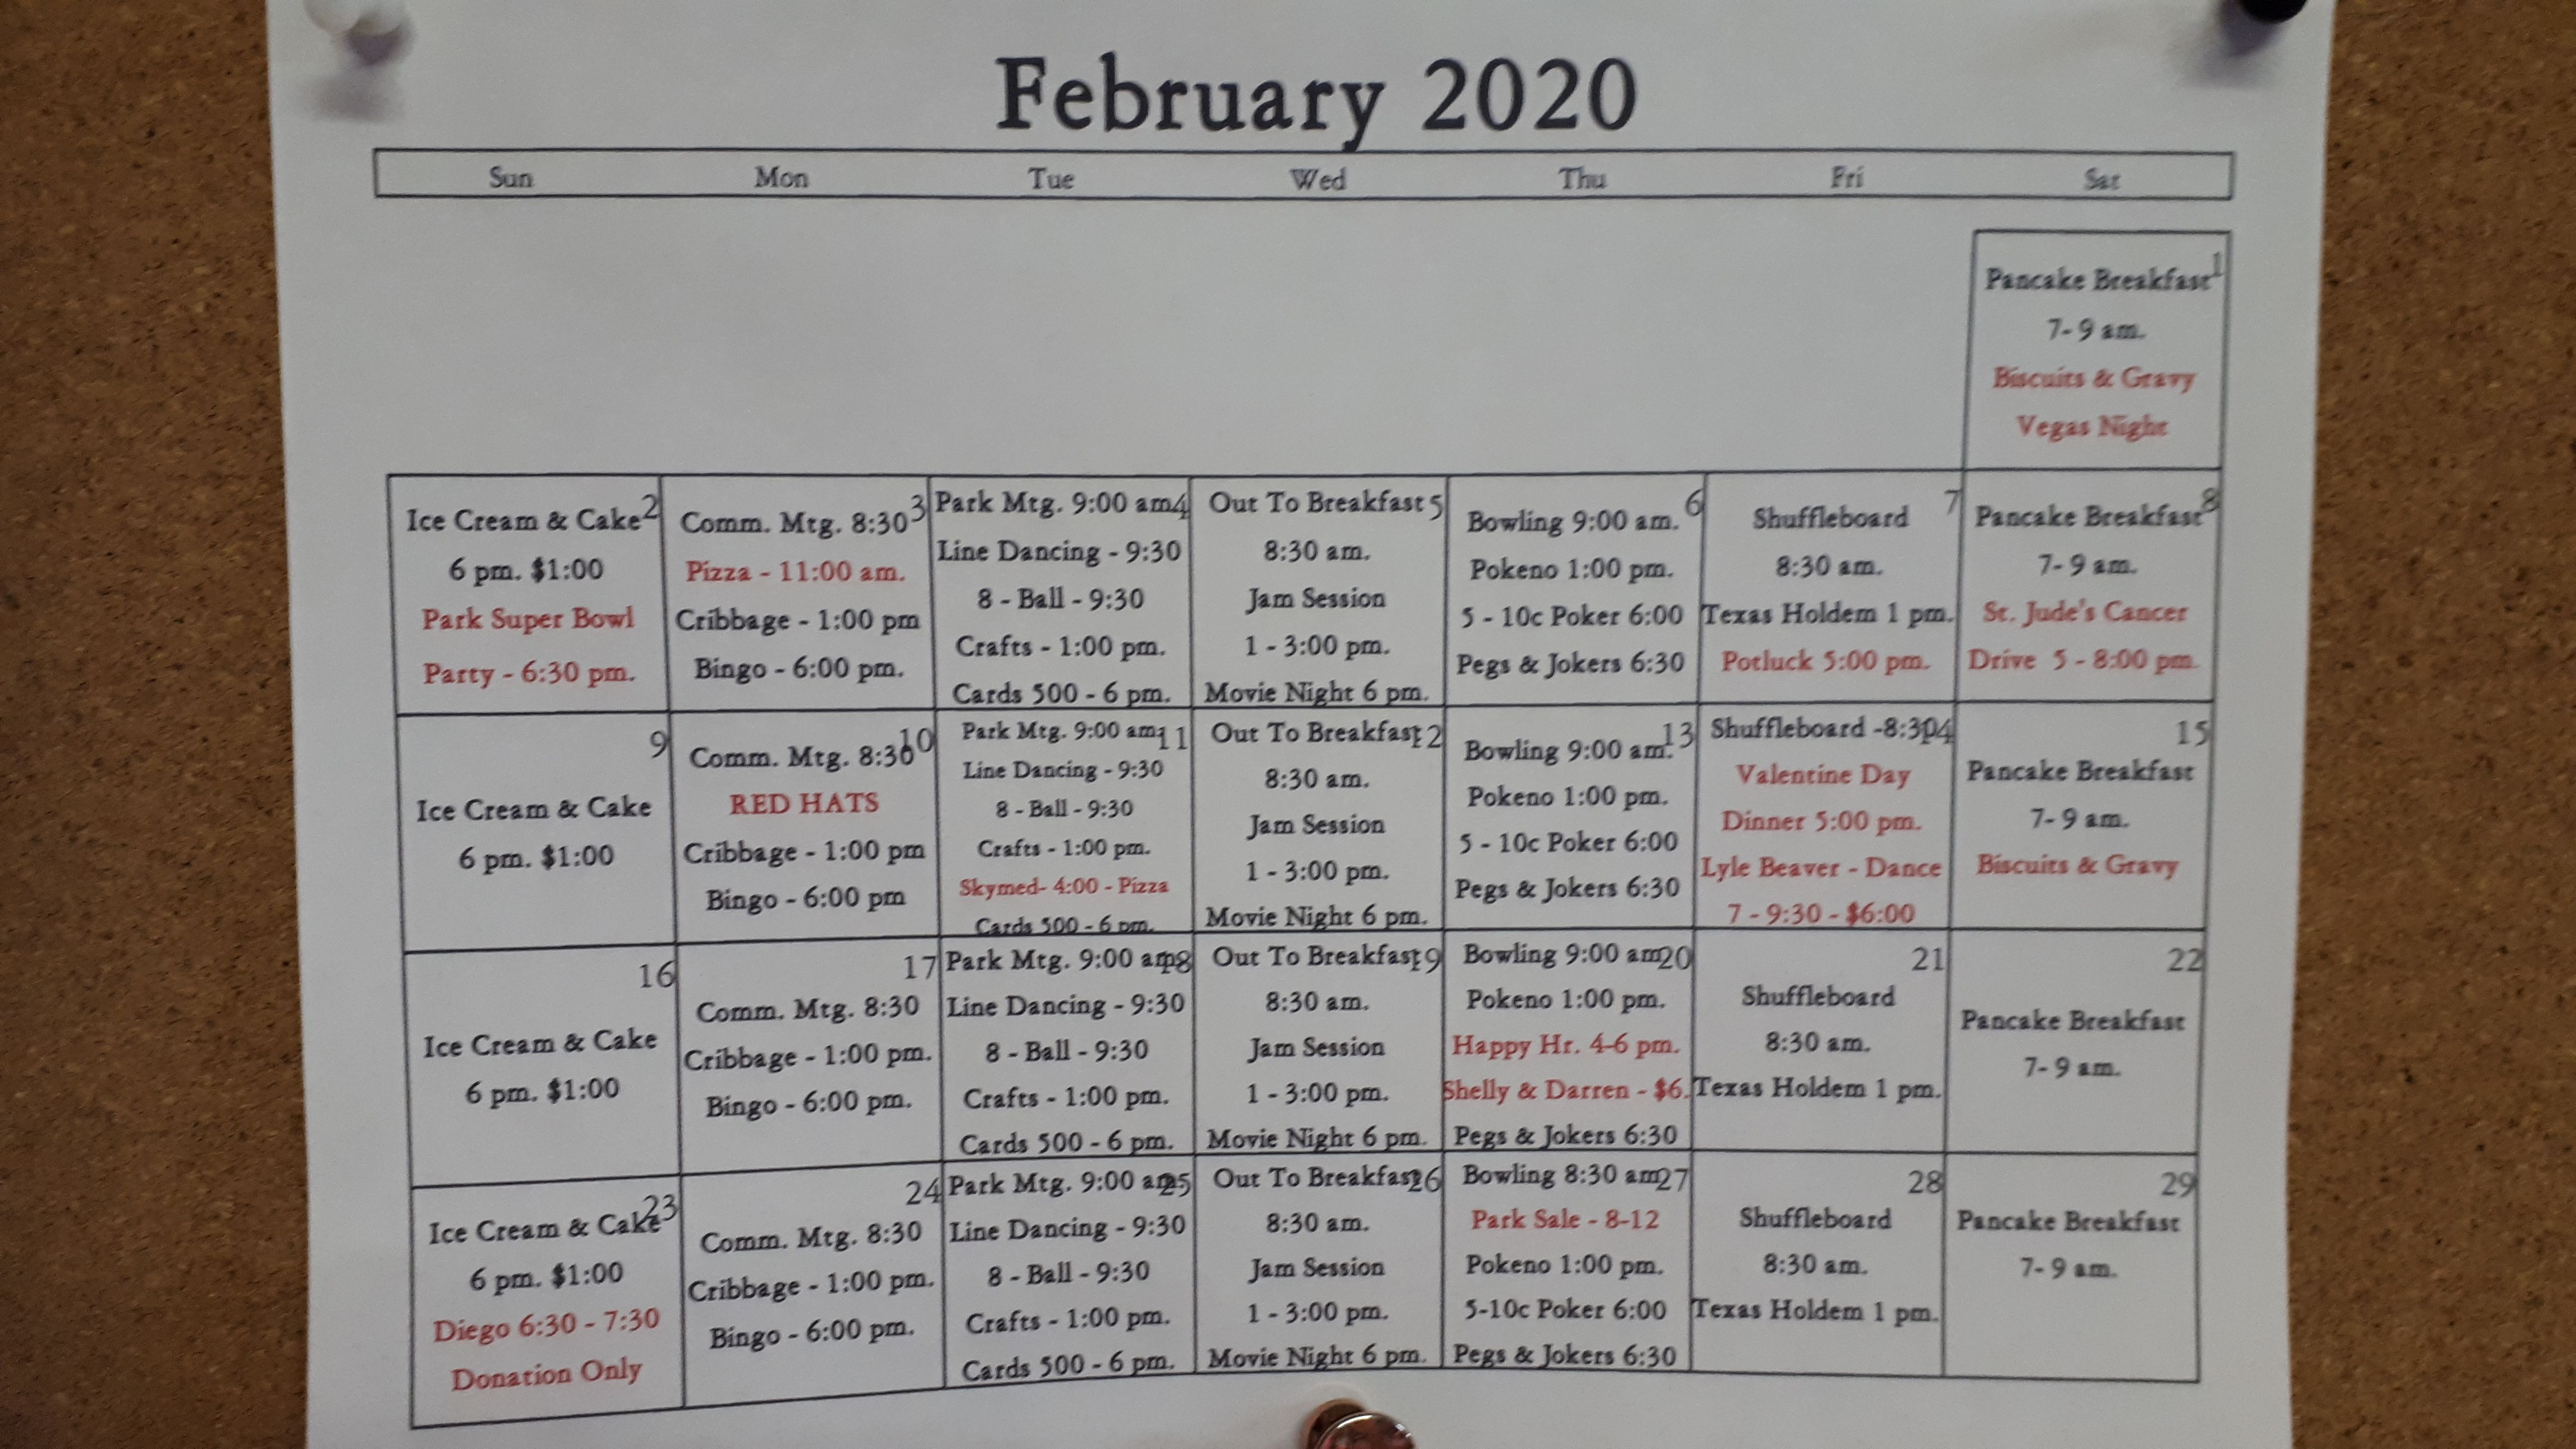 February 2020
Sun Mon Tue Wed Thu Fri Sat
1
Pancake Breakfast
7- 9 am.
Biscuits & Gravy
Vegas Night
2
Ice Cream & Cake
6 pm. $1:00
Park Super Bowl
Party - 6:30 pm.
3
Comm. Mtg. 8:30
Pizza - 11:00 am.
Cribbage - 1:00 pm
Bingo - 6:00 pm.
4
Park Mtg. 9:00 am
Line Dancing - 9:30
8 - Ball - 9:30
Crafts - 1:00 pm.
Cards 500 - 6 pm.
5
Out To Breakfast
8:30 am.
Jam Session
1 - 3:00 pm.
Movie Night 6 pm.
6
Bowling 9:00 am.
Pokeno 1:00 pm.
5 - 10c Poker 6:00
Pegs & Jokers 6:30
7
Shuffleboard
8:30 am.
Texas Holdem 1 pm.
Potluck 5:00 pm.
8
Pancake Breakfast
7- 9 am.
St. Jude's Cancer
Drive 5 - 8:00 pm.
9
Ice Cream & Cake
6 pm. $1:00
10
Comm. Mtg. 8:30
RED HATS
Cribbage - 1:00 pm
Bingo - 6:00 pm
11
Park Mtg. 9:00 am.
Line Dancing - 9:30
8 - Ball - 9:30
Crafts - 1:00 pm.
Skymed- 4:00 - Pizza
Cards 500 - 6 pm.
12
Out To Breakfast
8:30 am.
Jam Session
1 - 3:00 pm.
Movie Night 6 pm.
13
Bowling 9:00 am.
Pokeno 1:00 pm.
5 - 10c Poker 6:00
Pegs & Jokers 6:30
14
Shuffleboard -8:30
Valentine Day
Dinner 5:00 pm.
Lyle Beaver - Dance
7 - 9:30 - $6:00
15
Pancake Breakfast
7- 9 am.
Biscuits & Gravy
16
Ice Cream & Cake
6 pm. $1:00
17
Comm. Mtg. 8:30
Cribbage - 1:00 pm.
Bingo - 6:00 pm.
18
Park Mtg. 9:00 am
Line Dancing - 9:30
8 - Ball - 9:30
Crafts - 1:00 pm.
Cards 500 - 6 pm.
19
Out To Breakfast
8:30 am.
Jam Session
1 - 3:00 pm.
Movie Night 6 pm.
20
Bowling 9:00 am
Pokeno 1:00 pm.
Happy Hr. 4-6 pm.
Shelly & Darren - $6.
Pegs & Jokers 6:30
21
Shuffleboard
8:30 am.
Texas Holdem 1 pm.
22
Pancake Breakfast
7- 9 am.
23
Ice Cream & Cake
6 pm. $1:00
Diego 6:30 - 7:30
Donation Only
24
Comm. Mtg. 8:30
Cribbage - 1:00 pm.
Bingo - 6:00 pm.
25
Park Mtg. 9:00 am
Line Dancing - 9:30
8 - Ball - 9:30
Crafts - 1:00 pm.
Cards 500 - 6 pm.
26
Out To Breakfast
8:30 am.
Jam Session
1 - 3:00 pm.
Movie Night 6 pm.
27
Bowling 8:30 am
Park Sale - 8-12
Pokeno 1:00 pm.
5-10c Poker 6:00
Pegs & Jokers 6:30
28
Shuffleboard
8:30 am.
Texas Holdem 1 pm.
29
Pancake Breakfast
7- 9 am.